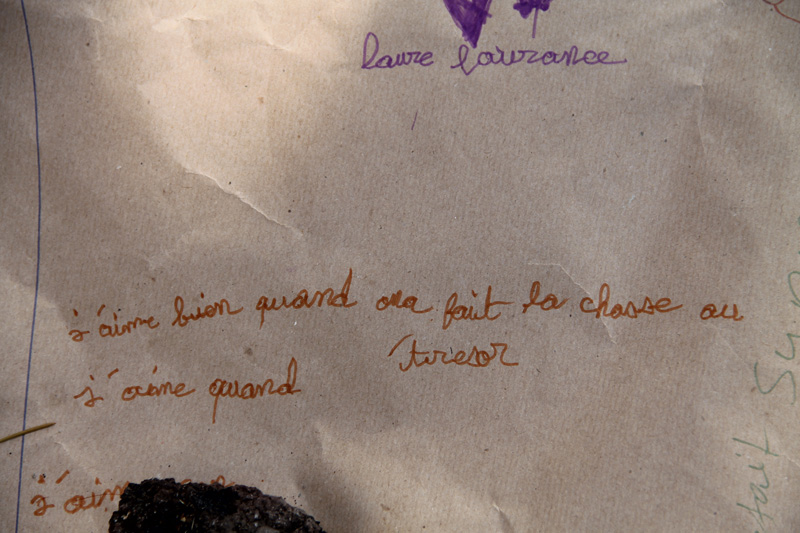 laure laurance
j'aime bien quand ona fait la chasse au
trésor
j'aime quand
j'aim
fait Sy